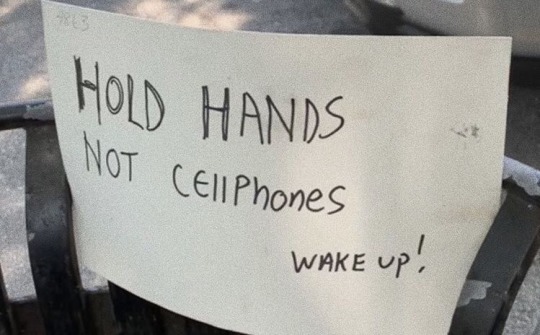 HOLD HANDS
NOT CellPhones
WAKE UP!